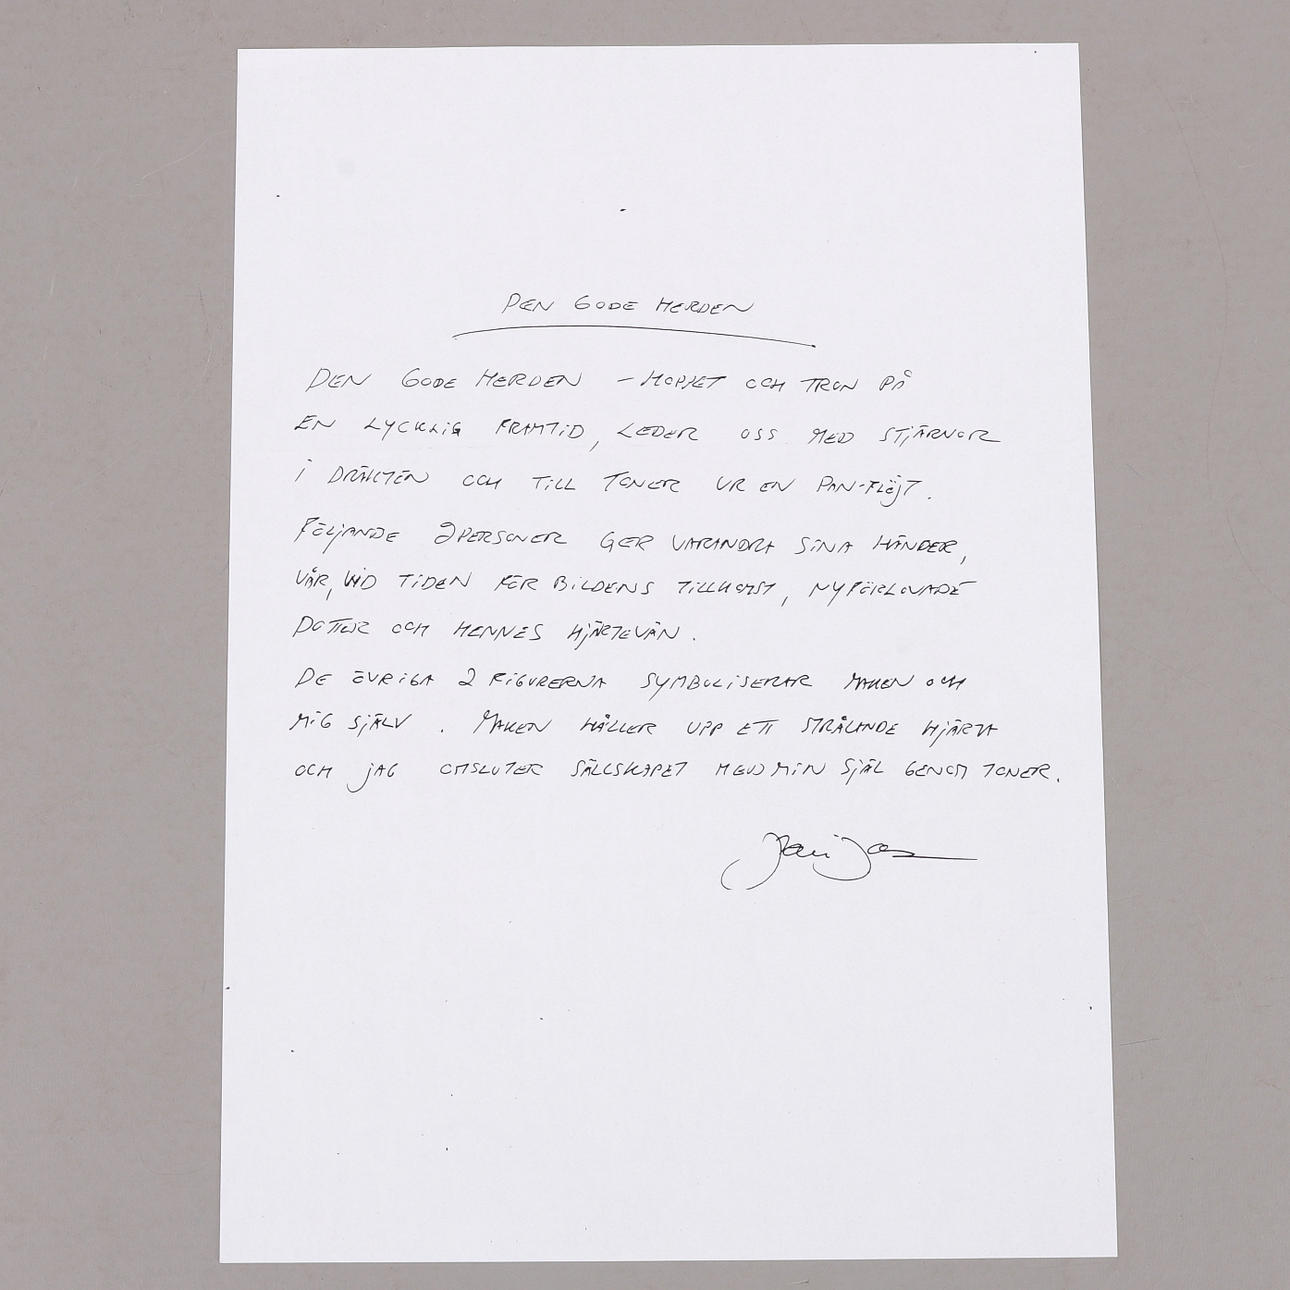 DEN GODE HERDEN
DEN GODE HERDEN – HOPPET OCH TRON PÅ
EN LYCKLIG FRAMTID, LEDER OSS MED STJÄRNOR
I DRÄKTEN OCH TILL TONER UR EN PAN-FLÖJT.
FÖLJANDE 2 PERSONER GER VARANDRA SINA HÄNDER,
VÅR, VID TIDEN FÖR BILDENS TILLKOMST, NYFÖRLOVADE
DOTTER OCH HENNES HJÄRTEVÄN.
DE ÖVRIGA 2 FIGURERNA SYMBOLISERAR MAKEN OCH
MIG SJÄLV. MAKEN HÅLLER UPP ETT STRÅLANDE HJÄRTA
OCH JAG OMSLUTER SÄLLSKAPET MED MIN SJÄL GENOM TONER.